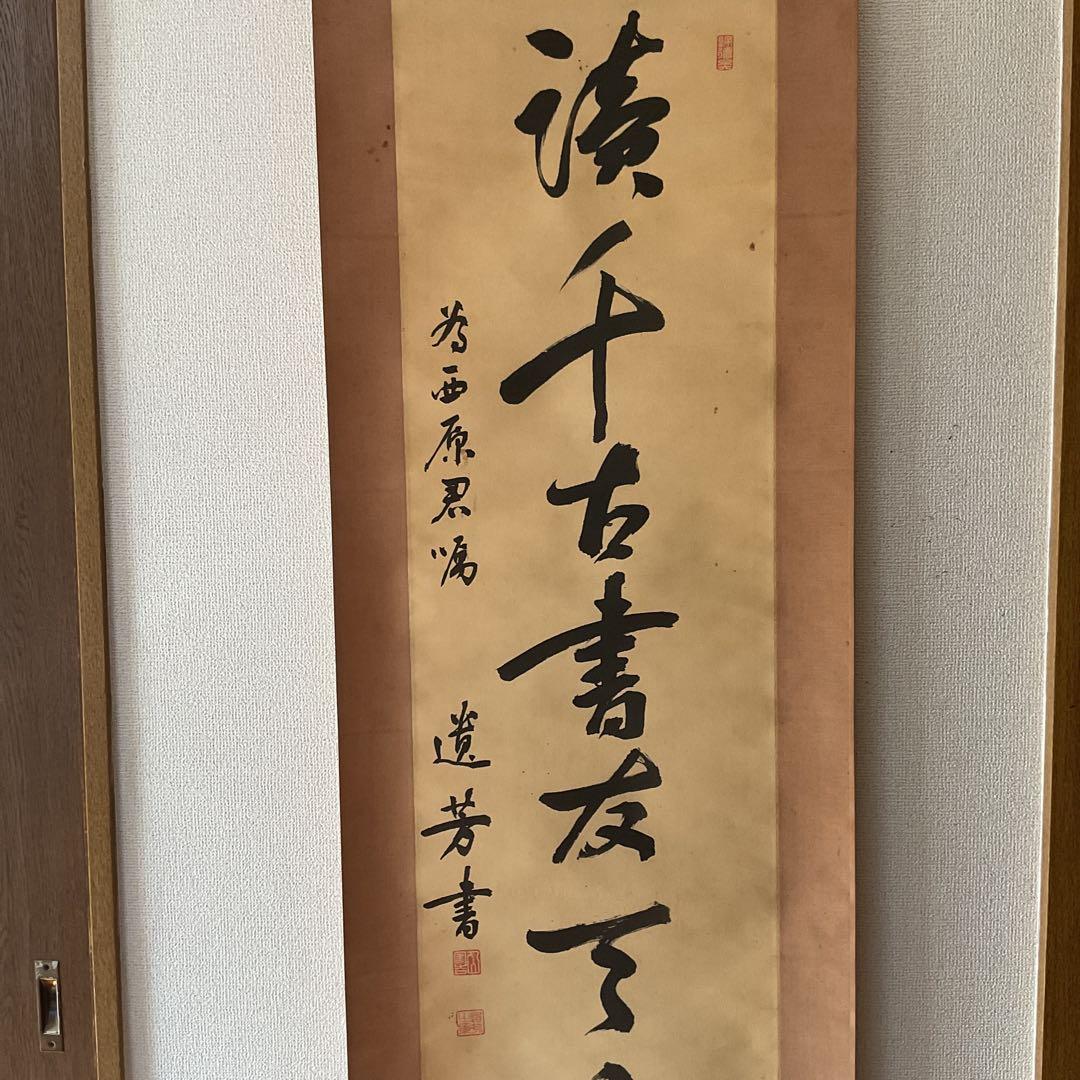 讀千古書友天
為西原君嘱
遺芳書